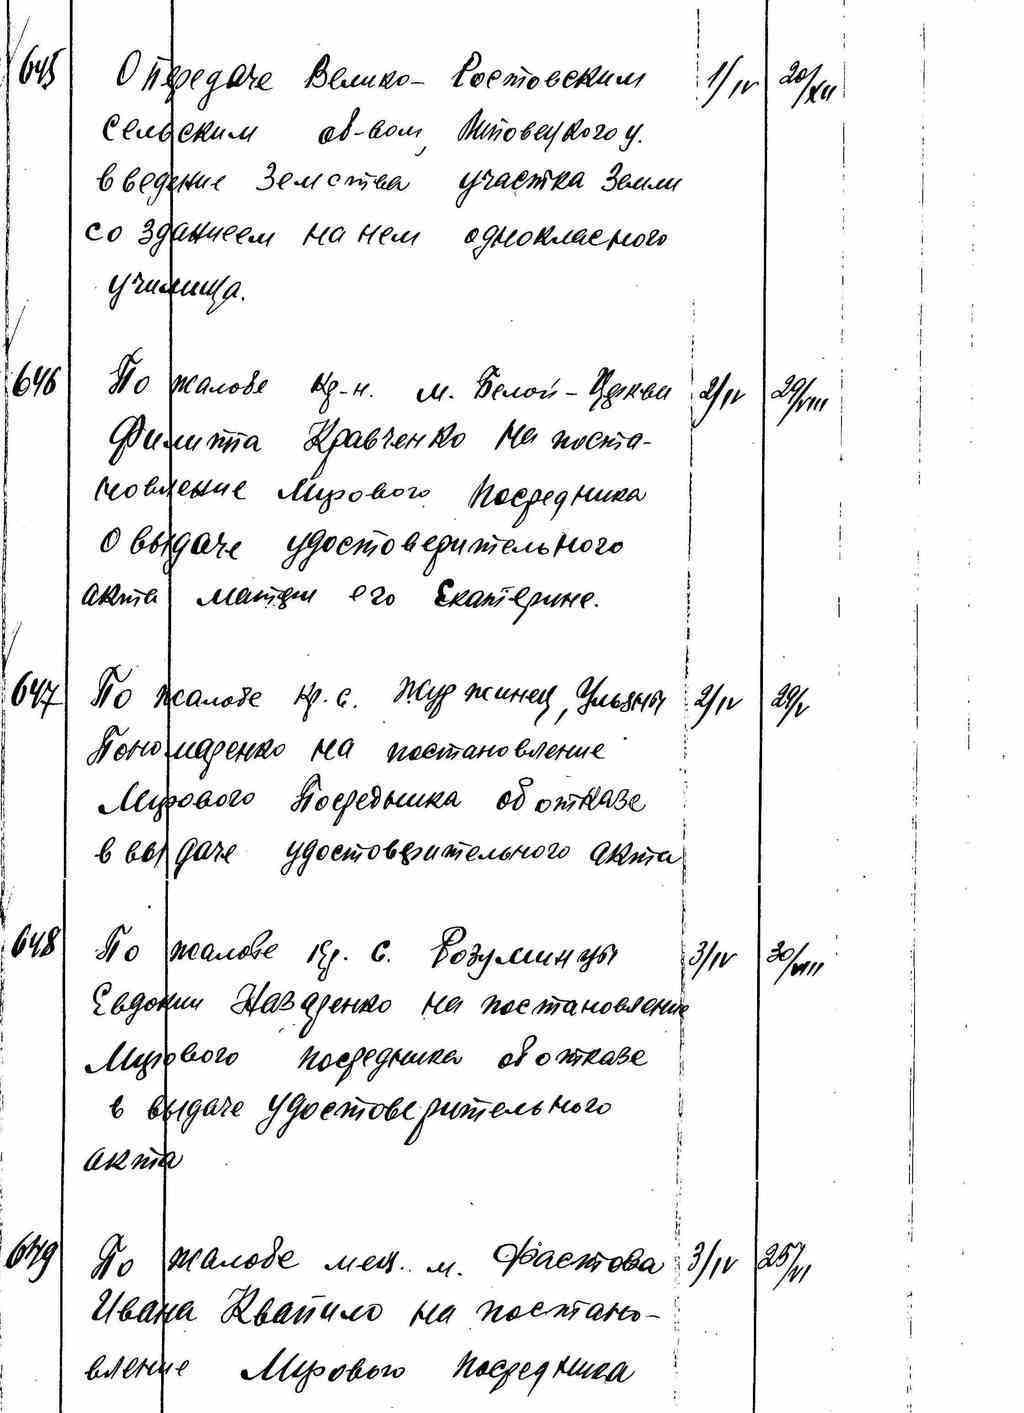 645 О передаче Велико-Ростовским 1/IV 20/XII
сельским об-вом, Липовецкого у.
в ведение Земства участка Земли
со зданием на нем однокласного
училища.
646 По жалобе кр-н. м. Белой-Церкви 2/IV 29/VIII
Филиппа Кравченко на поста-
новление Мирового Посредника
О выдаче удостоверительного
акта матери его Екатерине.
647 По жалобе кр. с. Журжинец, Ульяны 2/IV 29/V
Пономаренко на постановление
Мирового Посредника об отказе
в выдаче удостоверительного акта
648 По жалобе кр. с. Розуминцы 3/IV 30/VIII
Евдокии Назаренко на постановление
Мирового посредника об отказе
в выдаче удостоверительного
акта
649 По жалобе мещ. м. Фастова 3/IV 25/VI
Ивана Квапило на постано-
вление Мирового посредника